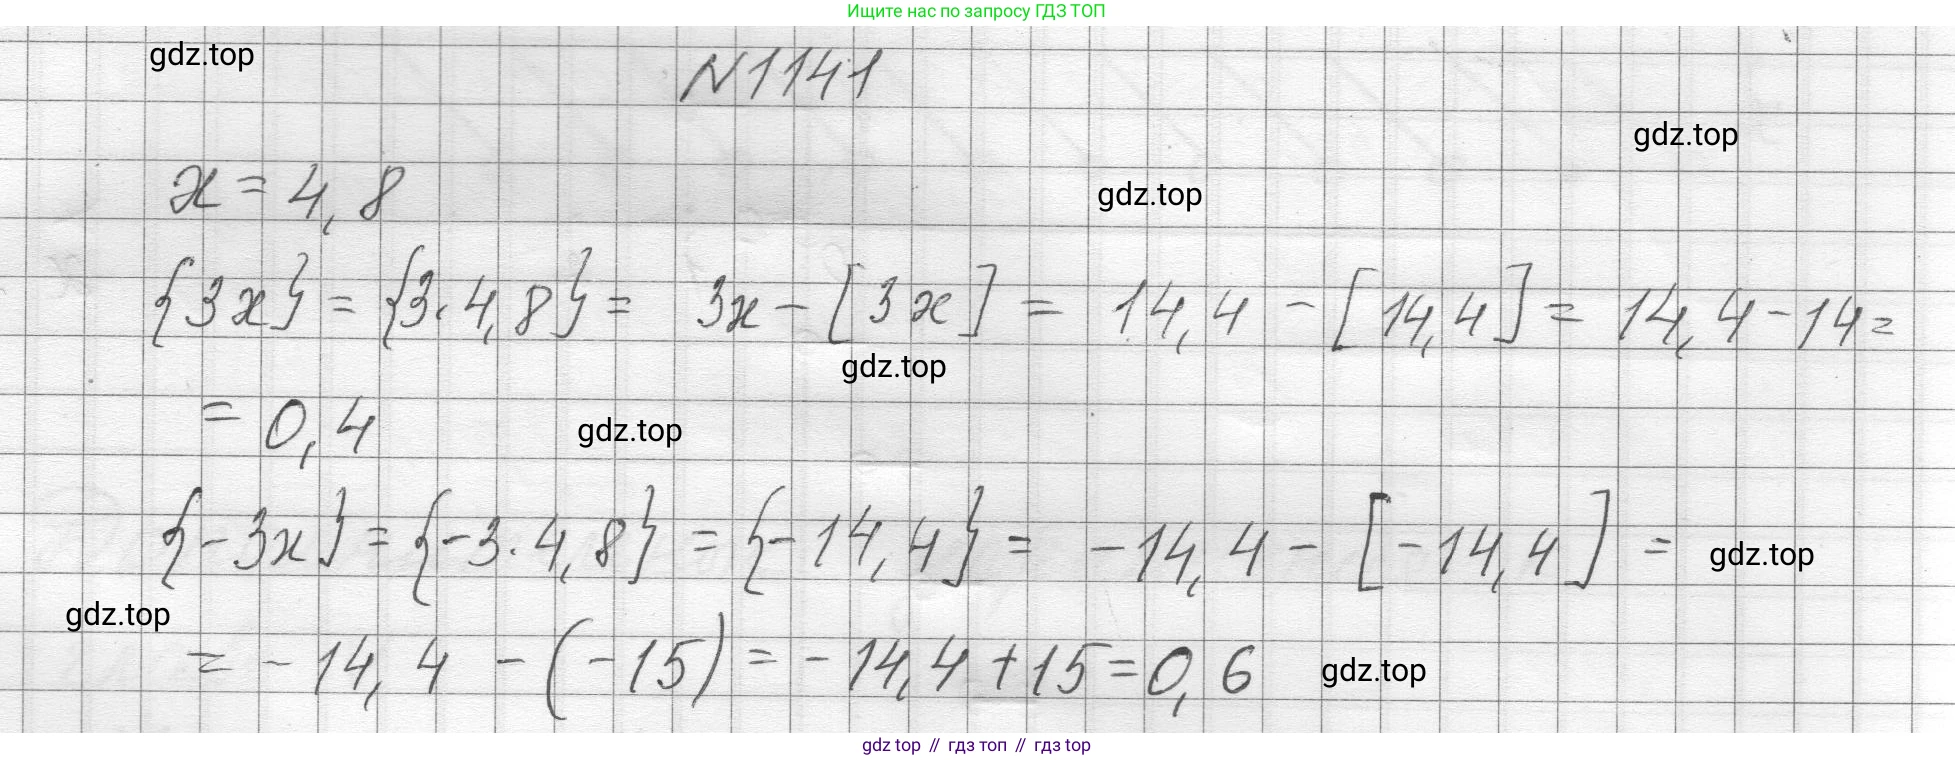 Ищите нас по запросу ГДЗ ТОП
gdz.top
N1141
gdz.top
x = 4,8
gdz.top
{3x} = {3·4,8} = 3x - [3x] = 14,4 - [14,4] = 14,4 - 14 =
gdz.top
= 0,4
gdz.top
{-3x} = {-3·4,8} = {-14,4} = -14,4 - [-14,4] =
gdz.top
gdz.top
= -14,4 - (-15) = -14,4 + 15 = 0,6
gdz.top
gdz top // гдз топ // гдз top